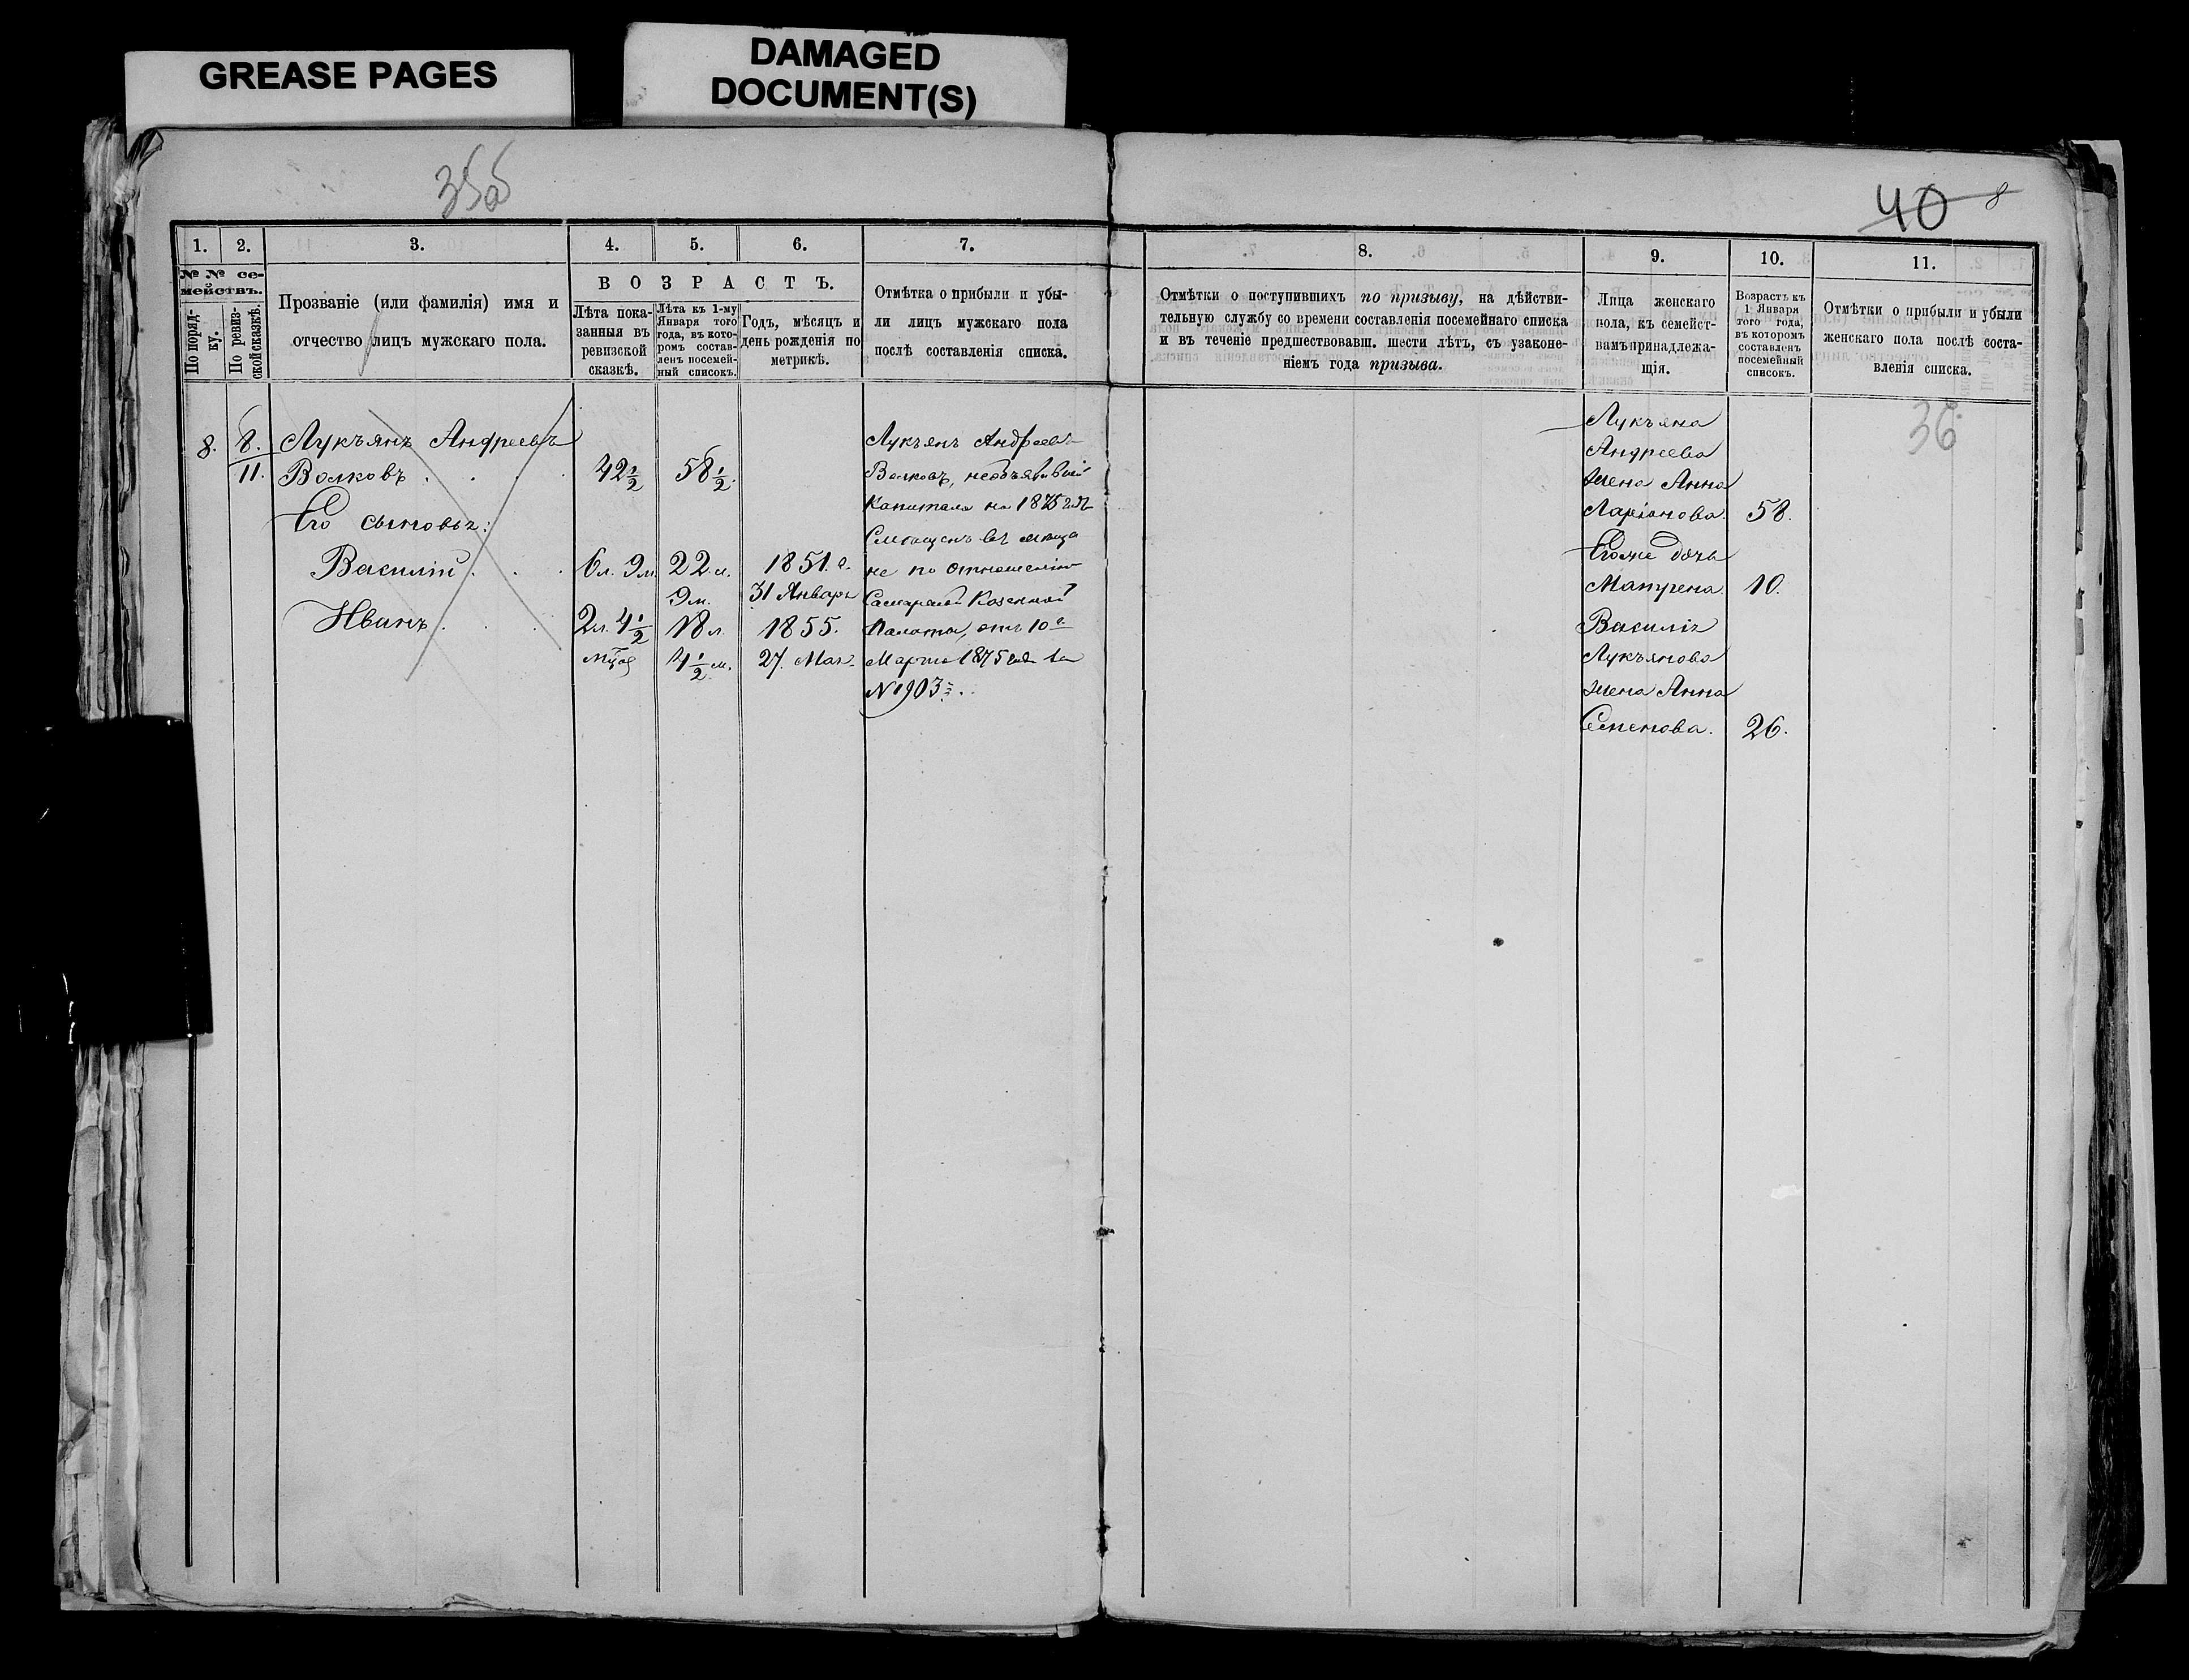 GREASE PAGES
DAMAGED
DOCUMENT(S)
40 8
1. 2. 3. 4. 5. 6. 7.
№ № се-
мействъ.
По поряд-
ку.
По ревиз-
ской сказкѣ.
Прозваніе (или фамилія) имя и
отчество лицъ мужскаго пола.
ВОЗРАСТЪ.
Лѣта пока-
занныя въ
ревизской
сказкѣ.
Лѣта къ 1-му
Января того
года, въ кото-
ромъ состав-
ленъ посемей-
ный списокъ.
Годъ, мѣсяцъ и
день рожденія по
метрикѣ.
Отмѣтка о прибыли и убы-
ли лицъ мужскаго пола
послѣ составленія списка.
8.
8.
11.
Лукъянъ Андреевъ
Волковъ . . . .
Его сыновья:
Василій . . .
Иванъ . . .
42 1/2
6 л. 9 м.
2 л. 4 1/2
58 1/2.
22 л.
9 м.
18 л.
4 1/2 м.
1851. г.
31 Январь
1855.
27. Мая.
Лукъянъ Андреевъ
Волковъ, необъявившій
Капитала на 1875 годъ
не по отношенію
Самарской Казенной
Палаты, отъ 10 г
Марта 1875 года за
№ 1903 . .
8. 9. 10. 11.
Отмѣтки о поступившихъ по призыву, на дѣйстви-
тельную службу со времени составленія посемейнаго списка
и въ теченіе предшествовавш. шести лѣтъ, съ узаконе-
ніемъ года призыва.
Лица женскаго
пола, къ семейст-
вамъ принадлежа-
щія.
Возрастъ къ
1 Января
того года,
въ которомъ
составленъ
посемейный
списокъ.
Отмѣтки о прибыли и убыли
женскаго пола послѣ соста-
вленія списка.
36
Лукъяна
Андреева
жена Анна
Ларіонова. 58.
Егоже дочь
Матрена 10.
Василія
Лукъянова
жена Анна
Семенова. 26.